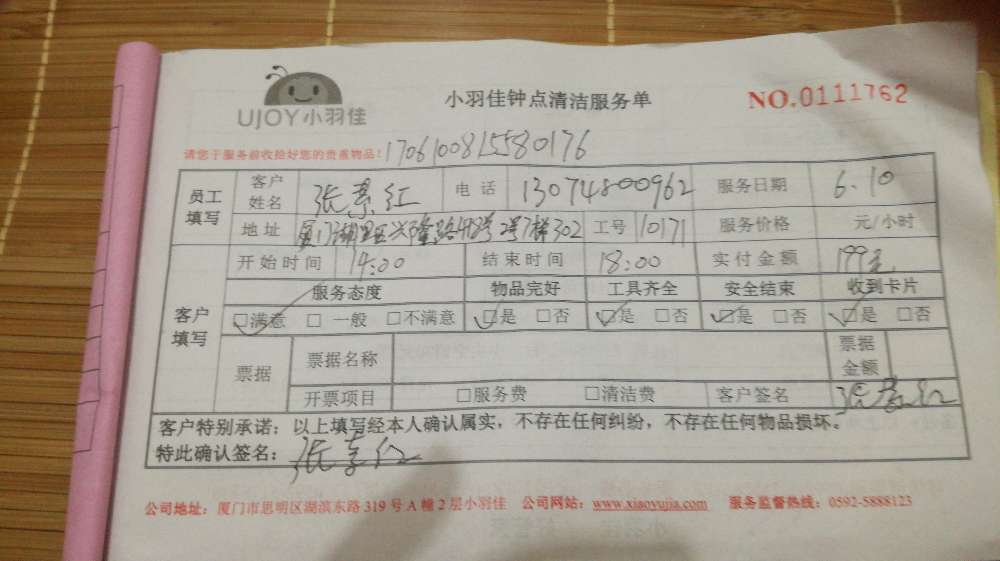 UJOY小羽佳
小羽佳钟点清洁服务单
NO.0111762
请您于服务前收拾好您的贵重物品!
1706100815580176
员工填写 客户姓名 张素红 电话 13074800962 服务日期 6.10
地址 厦门湖里区兴隆路 号 302 工号 10171 服务价格 元/小时
客户填写 开始时间 14:00 结束时间 18:00 实付金额 199元
服务态度 物品完好 工具齐全 安全结束 收到卡片
□满意 □一般 □不满意 □是 □否 □是 □否 □是 □否 □是 □否
票据 票据名称 票据金额
开票项目 □服务费 □清洁费 客户签名 张素红
客户特别承诺：以上填写经本人确认属实，不存在任何纠纷，不存在任何物品损坏。
特此确认签名：张素红
公司地址：厦门市思明区湖滨东路 319 号 A 幢 2 层小羽佳 公司网站：www.xiaoyujia.com 服务监督热线：0592-5888123